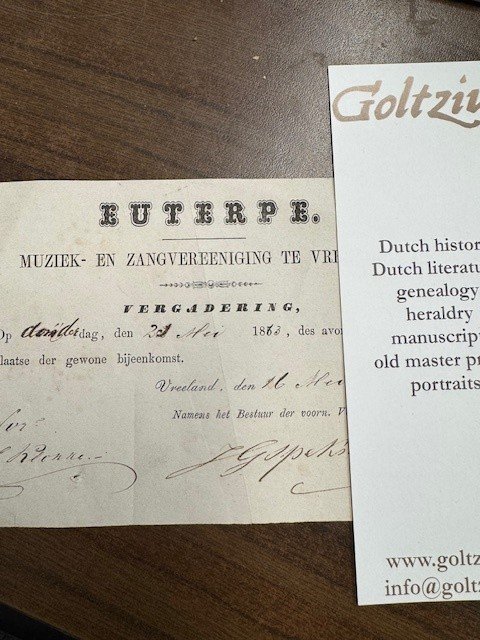 EUTERPE.
MUZIEK- EN ZANGVEREENIGING TE VRE
VERGADERING,
Op donderdag, den 21 Mei 1863, des avo
laatse der gewone bijeenkomst.
Vreeland, den 16 Mei
Namens het Bestuur der voorn. V
Goltziu
Dutch histor
Dutch literatu
genealogy
heraldry
manuscript
old master pr
portraits
www.goltz
info@goltz